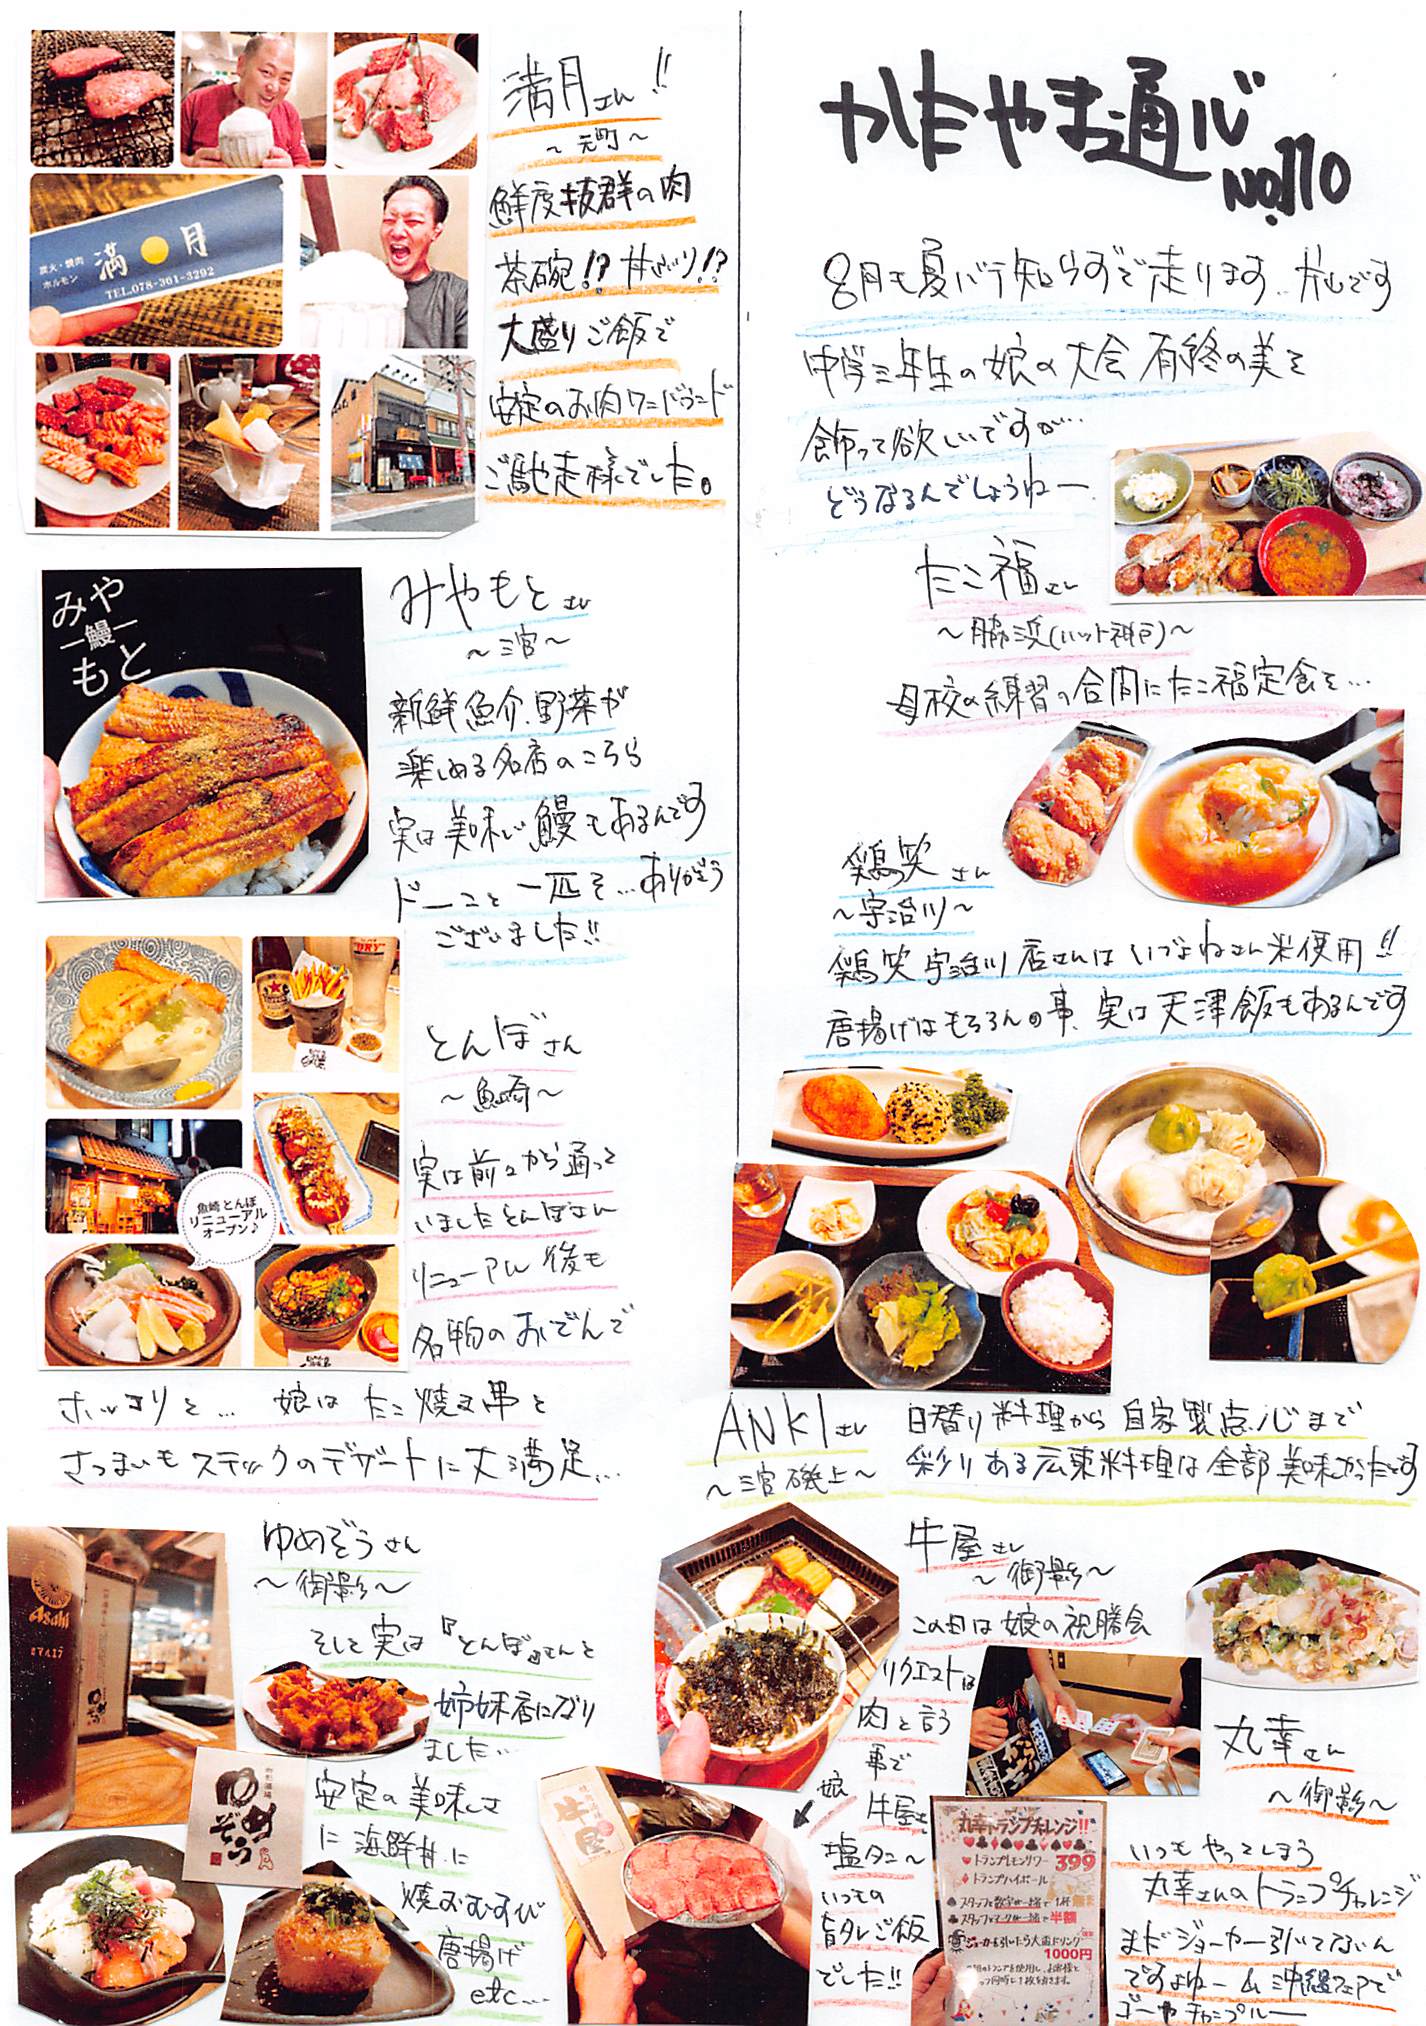 かたやま通心
NO.110
8月も夏バテ知らずで走ります。片山です
中学三年生の娘の大会 有終の美を
飾って欲しいですが…
どうなるんでしょうねー
たこ福さん
～脇浜(ハット神戸)～
母校の練習の合間にたこ福定食を…
鶏笑さん
～宇治川～
鶏笑 宇治川店さんは いづよねさん米使用!!
唐揚げはもちろんの事、実は天津飯もあるんです
ANKIさん
～三宮磯上～
日替り料理から 自家製点心まで
彩りある広東料理は全部美味かったです
牛屋さん
～御影～
この日は娘の祝勝会
リクエストは
肉と言う
事で
牛屋さん
娘
塩タン～
いつもの
旨タレご飯
でした!!
丸幸さん
～御影～
いつもやってしまう
丸幸さんのトランプチャレンジ
まだジョーカー引いてないん
ですよねー
沖縄フェアで
ゴーヤチャンプルー
丸幸トランプチャレンジ!!
トランプレモンサワー 399
トランプハイボール
スタッフと数字が一緒で1杯
スタッフとマークが一緒で半額
ジョーカーを引いたら大盛ドリンク
1000円
満月さん!!
～元町～
鮮度抜群の肉
茶碗!? 丼ぶり!?
大盛りご飯で
安定のお肉ワンバウンド
ご馳走様でした。
炭火・焼肉
ホルモン
満月
TEL.078-361-3292
みやもとさん
～三宮～
新鮮魚介、野菜が
楽しめる名店のこちら
実は美味しい鰻もあるんです
ドーンと一匹を…ありがとう
ございました!!
みや
ー鰻ー
もと
とんぼさん
～魚崎～
実は前々から通って
いましたとんぼさん
リニューアル後も
名物のおでんで
ホッコリと… 娘はたこ焼き串と
さつまいもスティックのデザートに大満足…
魚崎とんぼ
リニューアル
オープン♪
ゆめぞうさん
～御影～
そして実は『とんぼ』さんと
姉妹店になり
ました…
安定の美味しさ
に海鮮丼に
焼おむすび
唐揚げ
etc…
Asahi
ゆめぞう
牛屋